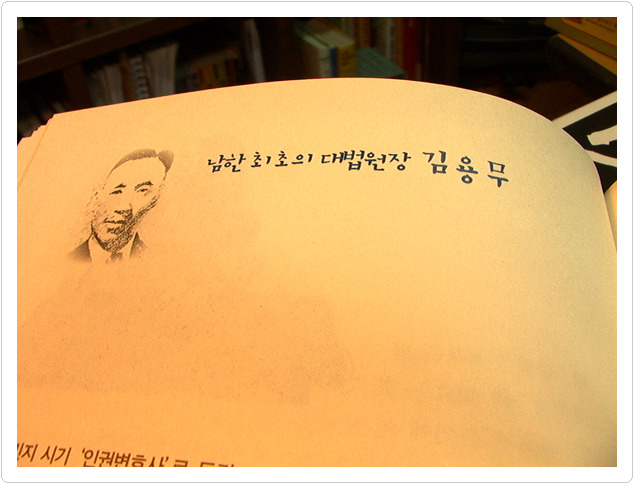 남한 최초의 대법원장 김용무
시기 '인권변호사'로